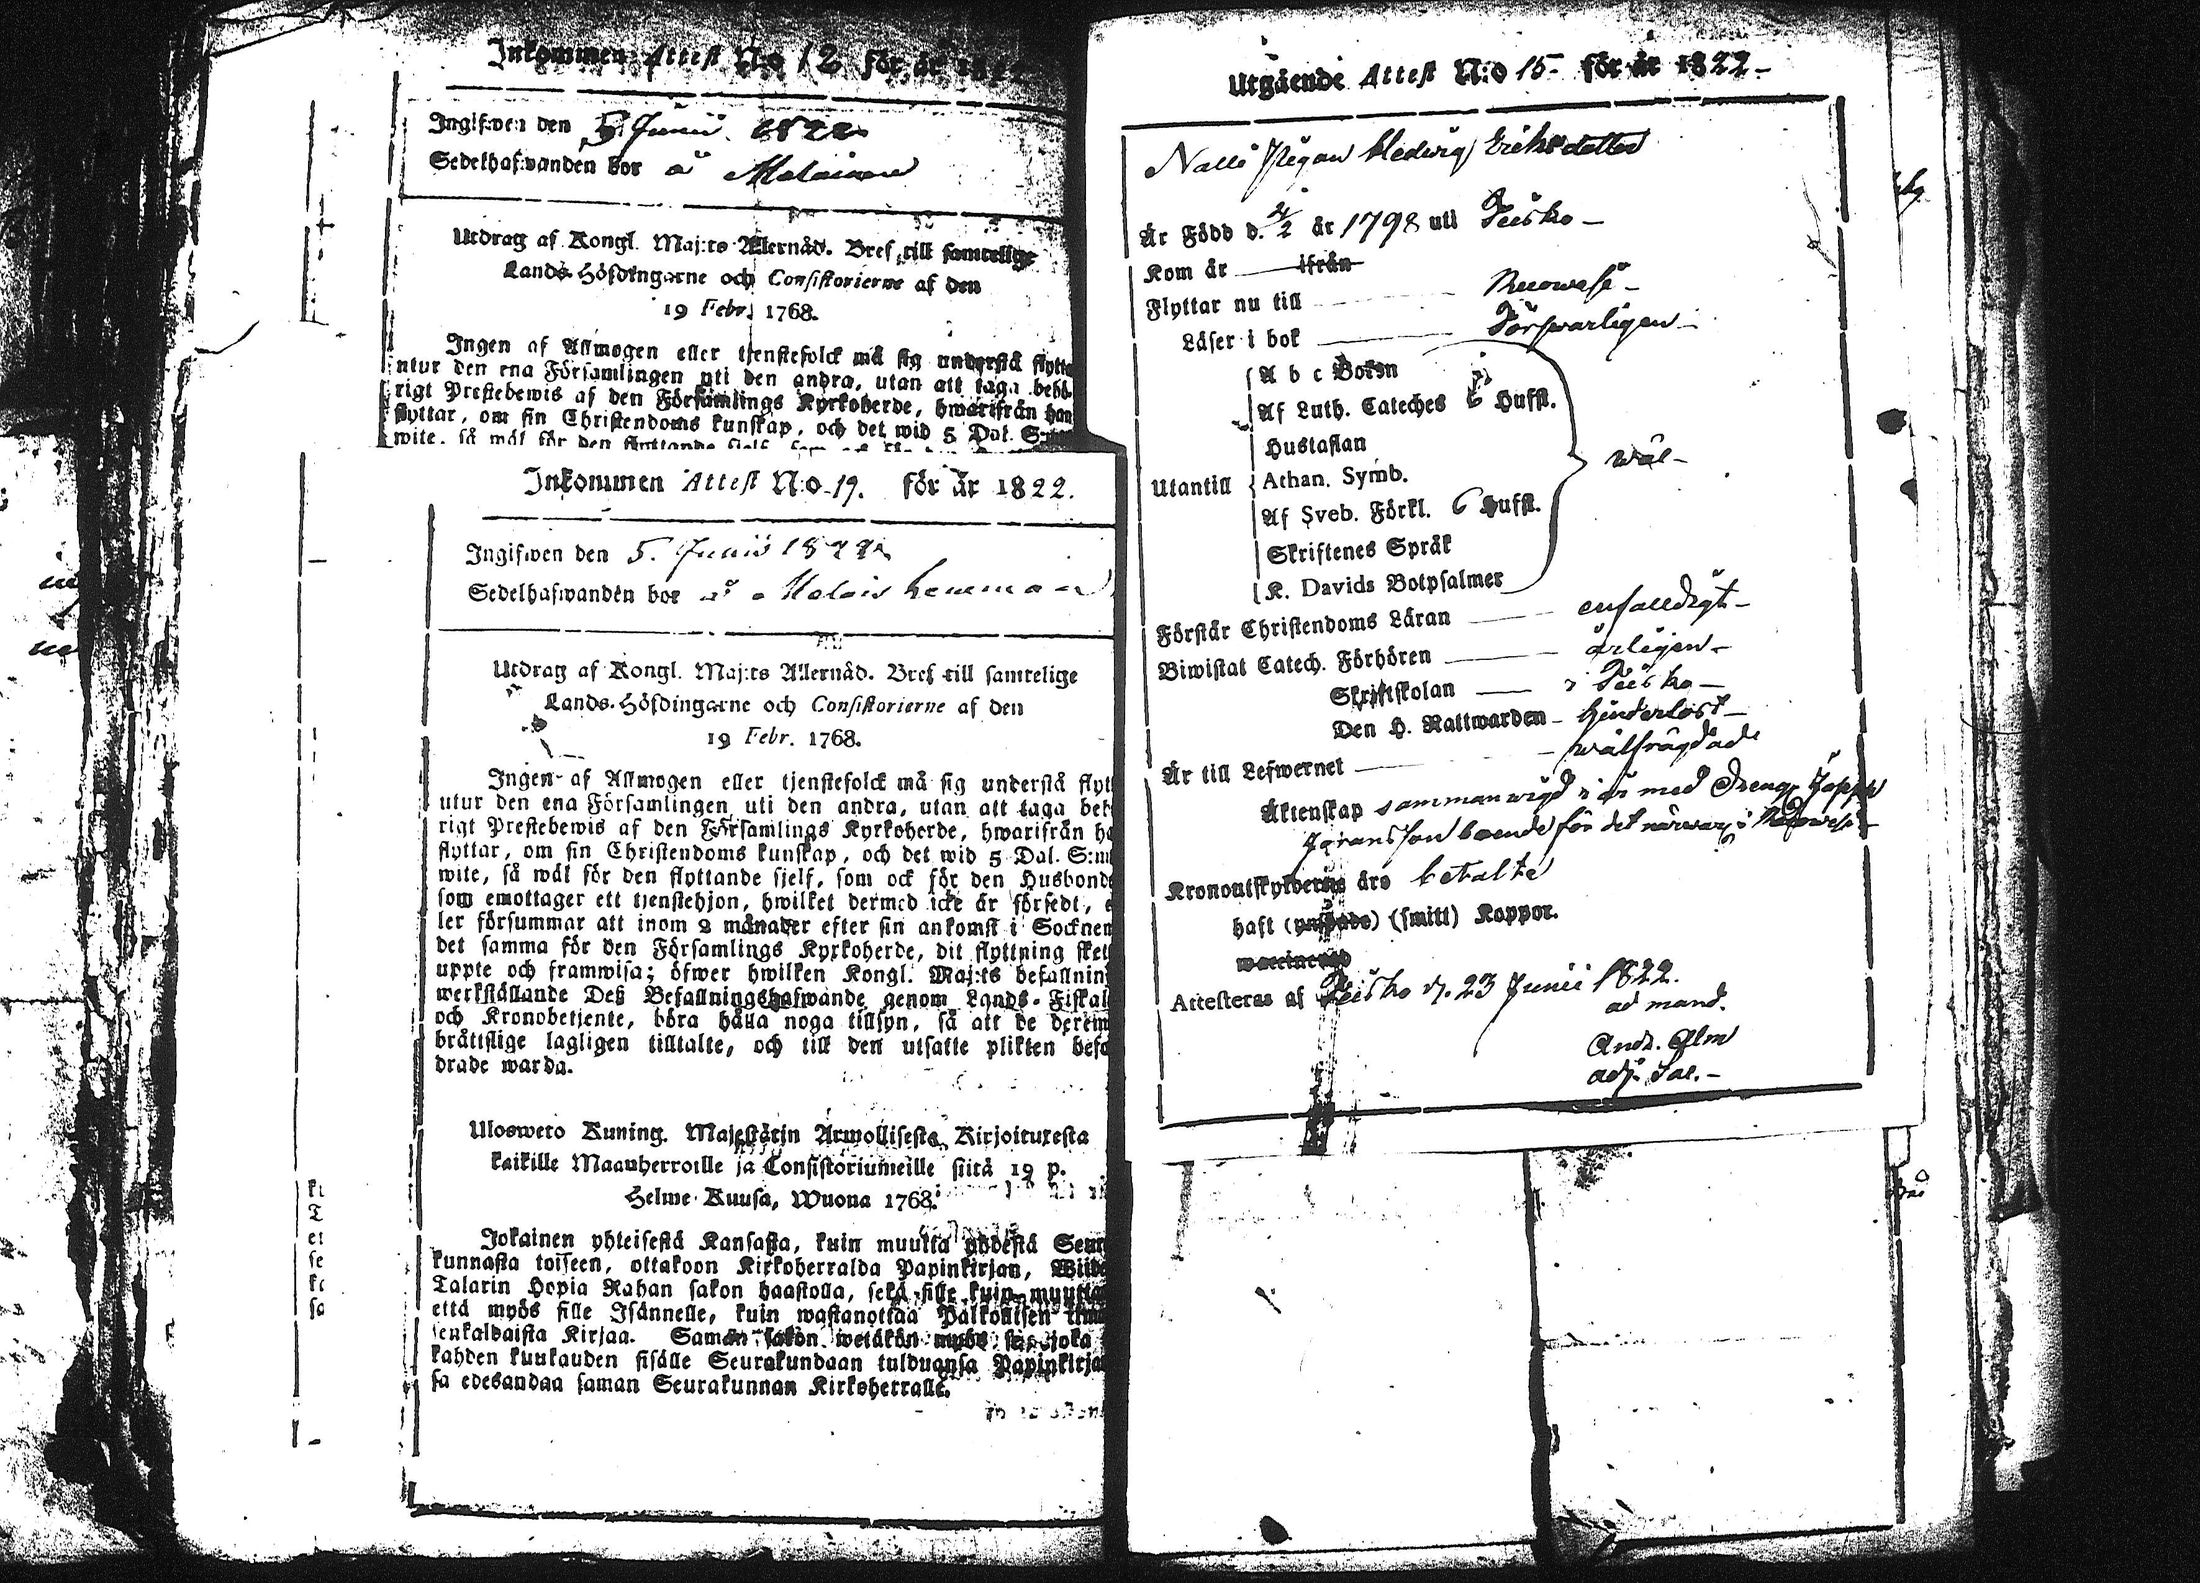 Inkommen Attest N:o 12 för år 1822
Ingifwen den 5 Junii 1822
Sedelhafwanden bor å
Utdrag af Kongl. Maj:ts Allernåd. Bref till samtelige
Lands-Höfdingarne och Consistorierne af den
19 Febr. 1768.
Ingen af Allmogen eller tjenstefolck må sig understå flytta
utur den ena Församlingen uti den andra, utan att taga behö-
rigt Prestebewis af den Församlings Kyrkoherde, hwarifrån han
flyttar, om sin Christendoms kunskap, och det wid 5 Dal. S:mt
wite, så wäl för den flyttande sjelf, som
Inkommen Attest N:o 19. för år 1822.
Ingifwen den 5. Junii 1822
Sedelhafwanden bor å
Utdrag af Kongl. Maj:ts Allernåd. Bref till samtelige
Lands-Höfdingarne och Consistorierne af den
19 Febr. 1768.
Ingen af Allmogen eller tjenstefolck må sig understå flyt
utur den ena Församlingen uti den andra, utan att taga beh
rigt Prestebewis af den Församlings Kyrkoherde, hwarifrån ha
flyttar, om sin Christendoms kunskap, och det wid 5 Dal. S:m
wite, så wäl för den flyttande sjelf, som ock för den Husbond
som emottager ett tjenstehjon, hwilket dermed icke är försedt, e
ler försummar att inom 2 månader efter sin ankomst i Socknen
det samma för den Församlings Kyrkoherde, dit flyttning sket
uppte och framwisa; öfwer hwilken Kongl. Maj:ts befallnin
werkställande Deß Befallningshafwande genom Lands-Fiskal
och Kronobetjente, böra hålla noga tillsyn, så att de derem
bråttslige lagligen tilltalte, och till den utsatte plikten befo
drade warda.
Ulosweto Kuning. Majestätin Armollisesta Kirjoituxesta
kaikille Maanherroille ja Consistoriumeille siitä 19 p.
Helme Kuusa, Wuona 1768.
Jokainen yhteisestä Kansasta, kuin muutta yhdestä Seur
kunnasta toiseen, ottakoon Kirkoherralda Papinkirjan, Wiid
Talarin Hopia Rahan sakon haastolla, sekä sille kuin muutta
että myös sille Isännelle, kuin wastanottaa Palkollisen ilma
senkaldaista Kirjaa. Saman sakon wetäkön myös se, joka
kahden kuukauden sisälle Seurakundaan tulduansa Papinkirja
sa edesandaa saman Seurakunnan Kirkoherralle.
Utgående Attest N:o 15 för år 1822
Pigan Hedwig Eriksdotter
Är Född d. 4/2 år 1798 uti Teisko
Kom år ifrån
Flyttar nu till Ruowesi
Läser i bok Förswarligen
A b c Boken
Af Luth. Cateches 6 Hufst.
Hustaflan
Utantill Athan. Symb. wäl
Af Sveb. Förkl. 6 Hufst.
Skriftenes Språk
K. Davids Botpsalmer
Förstår Christendoms Läran enfalldigt
Biwistat Catech. Förhören årligen
Skriftskolan i Teisko
Den H. Nattwarden hinderlöst
Är till Lefwernet wälfrägdad
Äktenskap sammanwigd i år med Dreng
boende för det närwar. i Ruowesi
Kronoutskylderna äro betalte
haft (smitt) Koppor.
Attesteras af Teisko d. 23 Junii 1822.
ad mand.
And. Alm
adj. Sac.